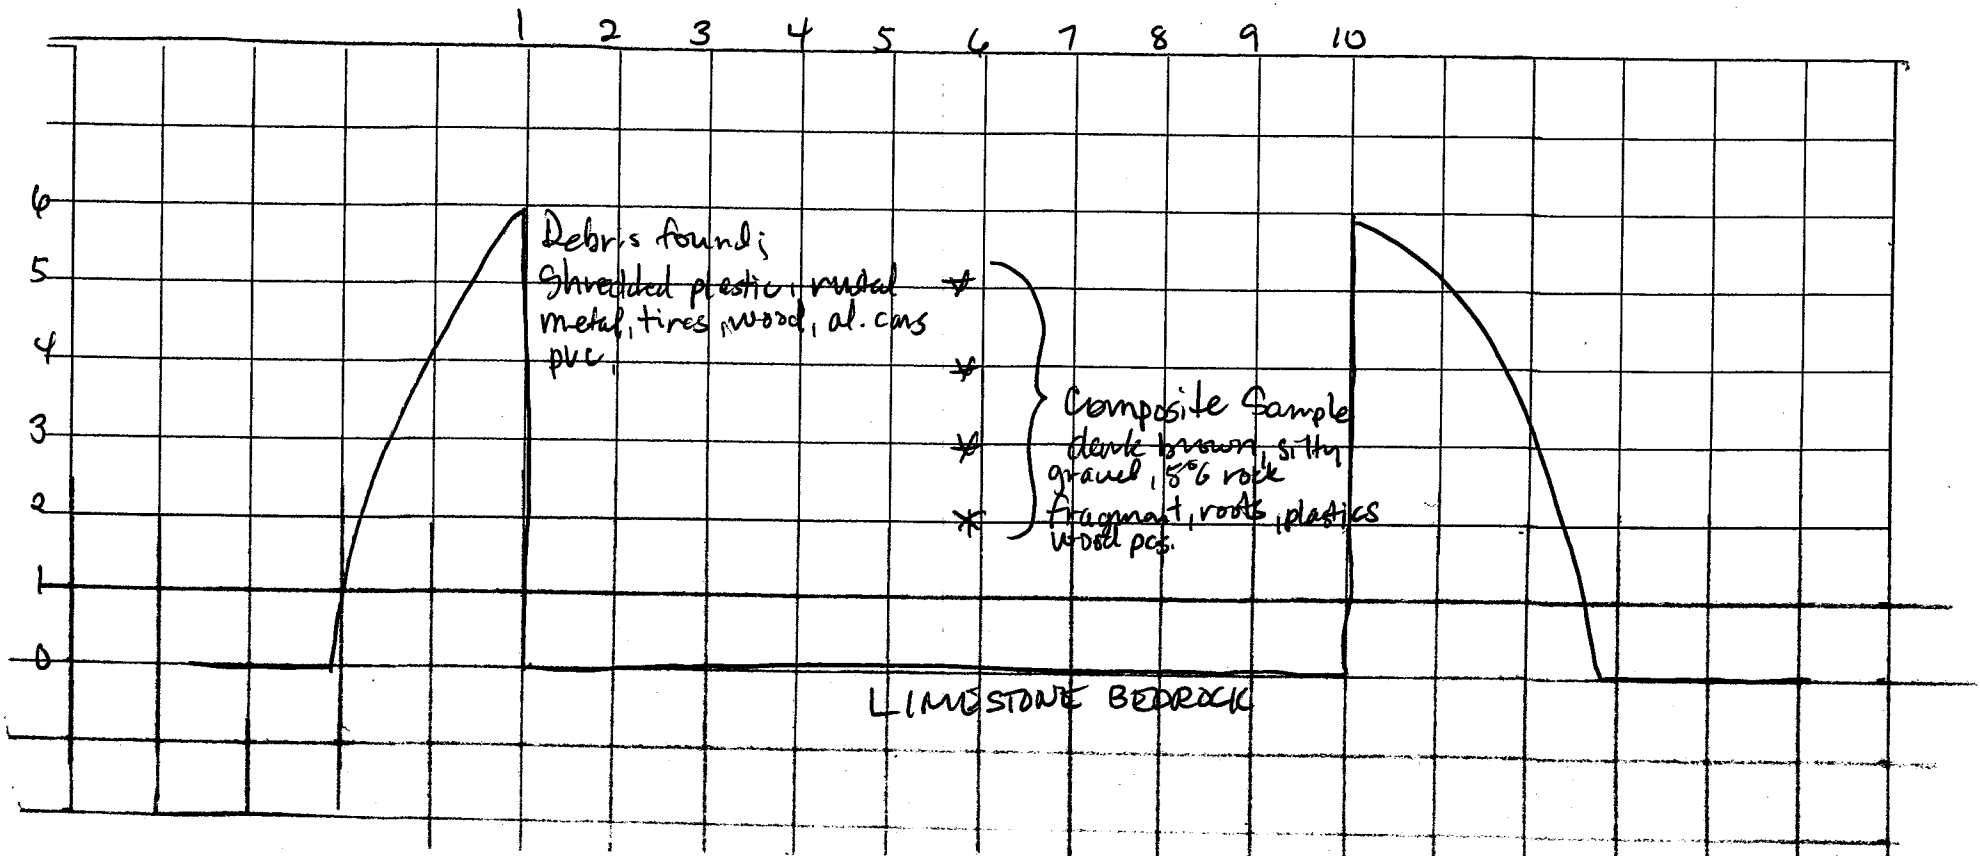 1 2 3 4 5 6 7 8 9 10
6
Debris found;
5
Shredded plastic, metal
metal, tires, wood, al. cans
4
pvc,
Composite Sample
3
dark brown, silty
gravel, rock
2
fragment, roots, plastics
wood pcs.
1
0
LIMESTONE BEDROCK